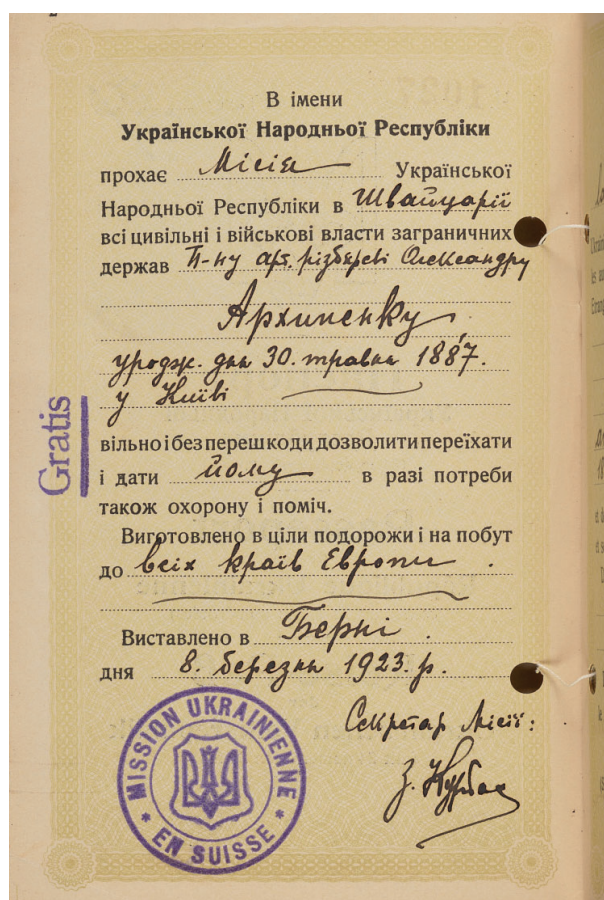 В імени
Української Народньої Республіки
прохає Місія Української
Народньої Республіки в Швайцарії
всі цивільні і військові власти заграничних
держав П-ну арт. різбяреві Олександру
Архипенку
уродж. дня 30. травня 1887.
у Київі
Gratis
вільно і без перешкоди дозволити переїхати
і дати йому в разі потреби
також охорону і поміч.
Виготовлено в ціли подорожи і на побут
до всіх країв Европи.
Виставлено в Берні.
дня 8. березня 1923. р.
Секретар Місії:
MISSION UKRAINIENNE
* EN SUISSE *